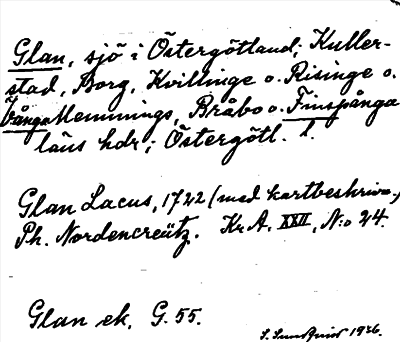 Glan, sjö i Östergötland; Kuller-
stad, Borg, Kvillinge o. Risinge o.
Vånga Memmings, Bråbo o. Finspånga
läns hdr; Östergötl. l.
Glan Lacus, 1722 (med kartbeskrivn.,
Ph. Nordencreütz. Kr A. XXII, N:o 24.
Glan ek. G. 55.
S. Sundquist 1926.